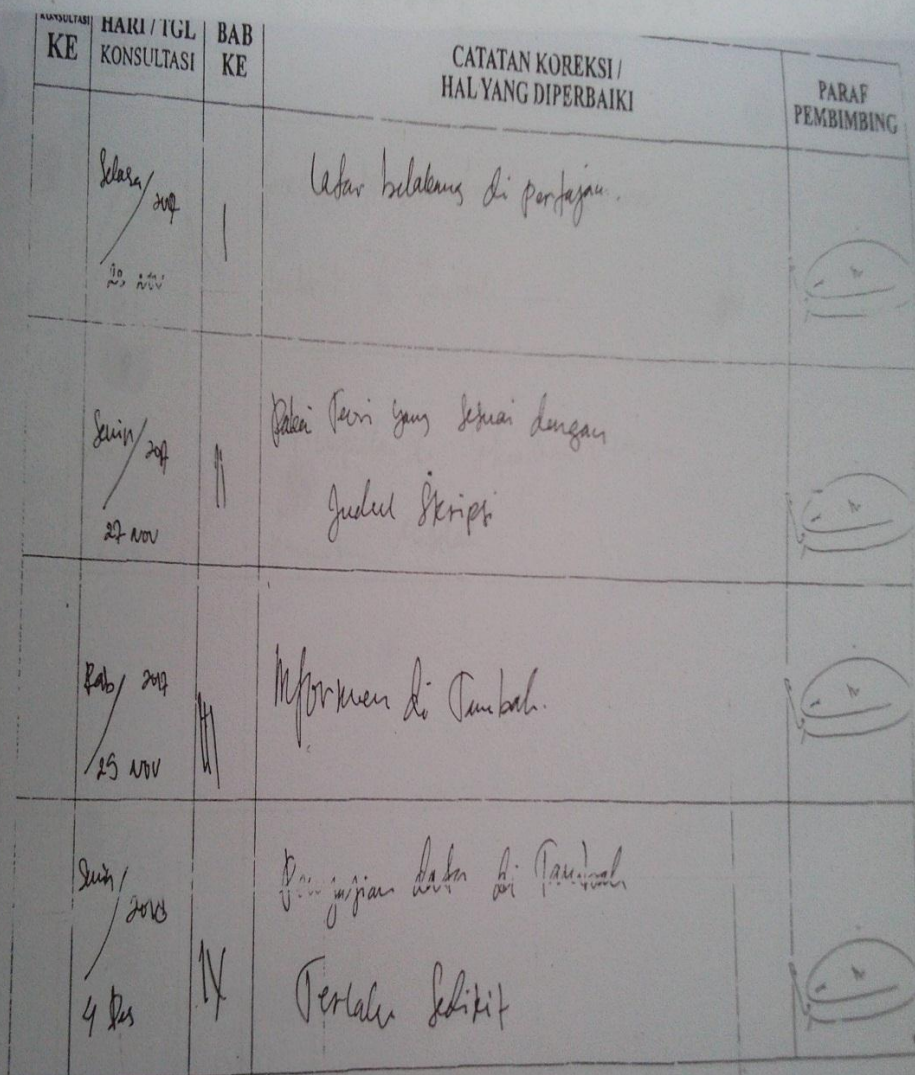 KONSULTASI KE
HARI / TGL KONSULTASI
BAB KE
CATATAN KOREKSI /
HAL YANG DIPERBAIKI
PARAF PEMBIMBING
Selasa / 2017
I
Latar belakang di pertajam.
Senin / 2017
27 Nov
II
Pakai Teori yang sesuai dengan
Judul Skripsi
Rab / 2017
29 Nov
III
Informen di Tambah.
Senin /
4 Des
IV
Penyajian data di Tambah
Terlalu Sedikit